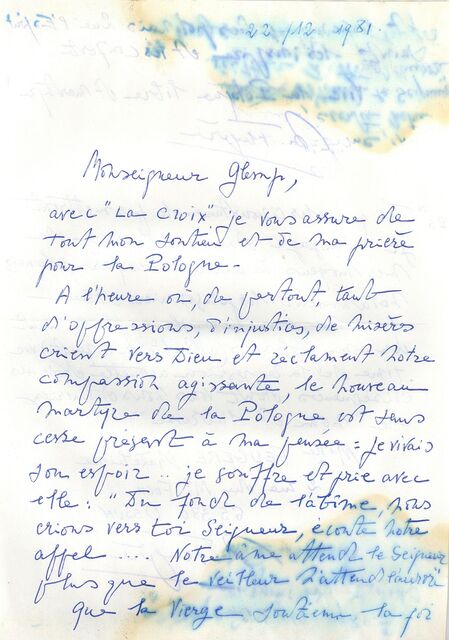 22/12 1981.
Monseigneur Glemp,
avec "La Croix" je vous assure de
tout mon soutien et de ma prière
pour la Pologne.
A l'heure où, de partout, tant
d'oppressions, d'injustices, de misères
crient vers Dieu et réclament notre
compassion agissante, le nouveau
martyre de la Pologne est sans
cesse présent à ma pensée : je vivais
son espoir .. je souffre et prie avec
elle : "Du fond de l'abîme, nous
crions vers toi Seigneur, écoute notre
appel .... Notre âme attend le Seigneur
plus que le veilleur n'attend l'aurore"
Que la Vierge soutienne la foi